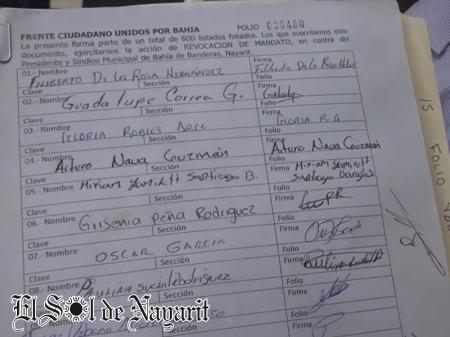 FRENTE CIUDADANO UNIDOS POR BAHIA FOLIO 000480
La presente forma parte de un total de 600 listados foliados. Los que suscribimos este
documento, ejercitamos la acción de REVOCACION DE MANDATO, en contra del
Presidente y Síndico Municipal de Bahía de Banderas, Nayarit.
01.- Nombre Firma
FILIBERTO DE LA ROSA HERNÁNDEZ Filiberto De La Rosa Hdez
Clave Sección Folio
02.- Nombre Firma
Guadalupe Correa G.
Clave Sección Folio
03.- Nombre Firma
GLORIA ROBLES GLORIA R.A
Clave Sección Folio
04.- Nombre Firma
Arturo Nava Guzmán Arturo Nava Guzmán
Clave Sección Folio
05.- Nombre Firma
Miriam Santiago B. Miriam
Santiago
Clave Sección Folio
06.- Nombre Firma
Grisenia Peña Rodriguez
Clave Sección Folio
07.- Nombre Firma
OSCAR GARCIA
Clave Sección Folio
08.- Nombre Firma
PAULINA
Sección Folio
Nombre Firma
Sección Folio
Firma
15 FOLIO
El Sol de Nayarit